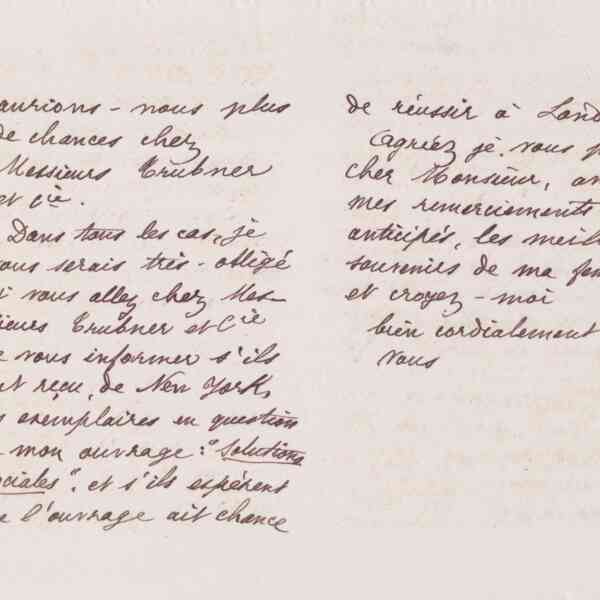 aurions - nous plus
de chances chez
Messieurs Trubner
et Cie.
Dans tous les cas, je
vous serais très - obligé
si vous allez chez Mes-
sieurs Trubner et Cie
de vous informer s'ils
ont reçu, de New York,
exemplaires en question
mon ouvrage : "Solutions
ociales". et s'ils espèrent
e l'ouvrage ait chance
de réussir à Lond
Agréez je vous p
cher Monsieur, av
mes remerciements
anticipés, les meill
souvenirs de ma fem
et croyez - moi
bien cordialement
vous